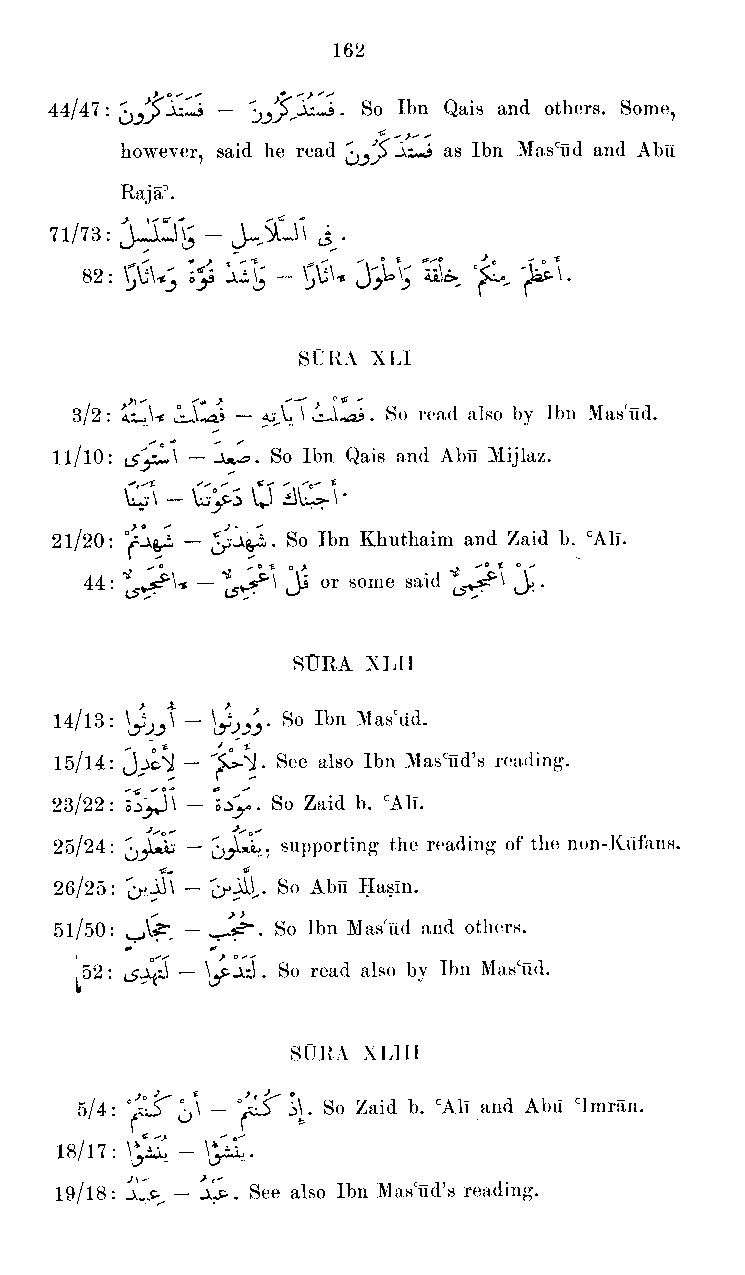 162
44/47: فَسَتَذْكُرُونَ — فَسَتَذْكِرُونَ. So Ibn Qais and others. Some,
however, said he read فَسَتَذَكَّرُونَ as Ibn Masʿūd and Abū
Rajāʾ.
71/73: وَٱلسَّلَٰسِلُ — فِى ٱلسَّلَاسِلِ.
82: وَأَشَدَّ قُوَّةً وَءَاثَارًا — أَعْظَمَ مِنْكُمْ خِلْقَةً وَأَطْوَلَ ءَاثَارًا.
SŪRA XLI
3/2: فُصِّلَتْ ءَايَٰتُهُ — فَصَّلْتُ آيَاتِهِ. So read also by Ibn Masʿūd.
11/10: ٱسْتَوَىٰ — صَعِدَ. So Ibn Qais and Abū Mijlaz.
أَتَيْنَا — أَجَبْنَاكَ لَمَّا دَعَوْتَنَا.
21/20: شَهِدْتُمْ — شَهِدْتُنَّ. So Ibn Khuthaim and Zaid b. ʿAlī.
44: ءَاعْجَمِىٌّ — قُلْ أَعْجَمِىٌّ or some said بَلْ أَعْجَمِىٌّ.
SŪRA XLII
14/13: أُورِثُوا — وُورِثُوا. So Ibn Masʿūd.
15/14: لِأَعْدِلَ — لِأَحْكُمَ. See also Ibn Masʿūd's reading.
23/22: ٱلْمَوَدَّةَ — مَوَدَةً. So Zaid b. ʿAlī.
25/24: تَفْعَلُونَ — يَفْعَلُونَ, supporting the reading of the non-Kūfans.
26/25: ٱلَّذِينَ — لِلَّذِينَ. So Abū Ḥaṣīn.
51/50: حِجَابٍ — حُجُبٍ. So Ibn Masʿūd and others.
52: لَتَهْدِى — لَتَدْعُوا. So read also by Ibn Masʿūd.
SŪRA XLIII
5/4: أَنْ كُنْتُمْ — إِذْ كُنْتُمْ. So Zaid b. ʿAlī and Abū ʿImrān.
18/17: يُنَشَّؤُا — يَنْشَؤُا.
19/18: عِبَٰدُ — عَبْدُ. See also Ibn Masʿūd's reading.